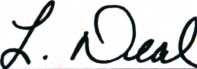 L. Deal